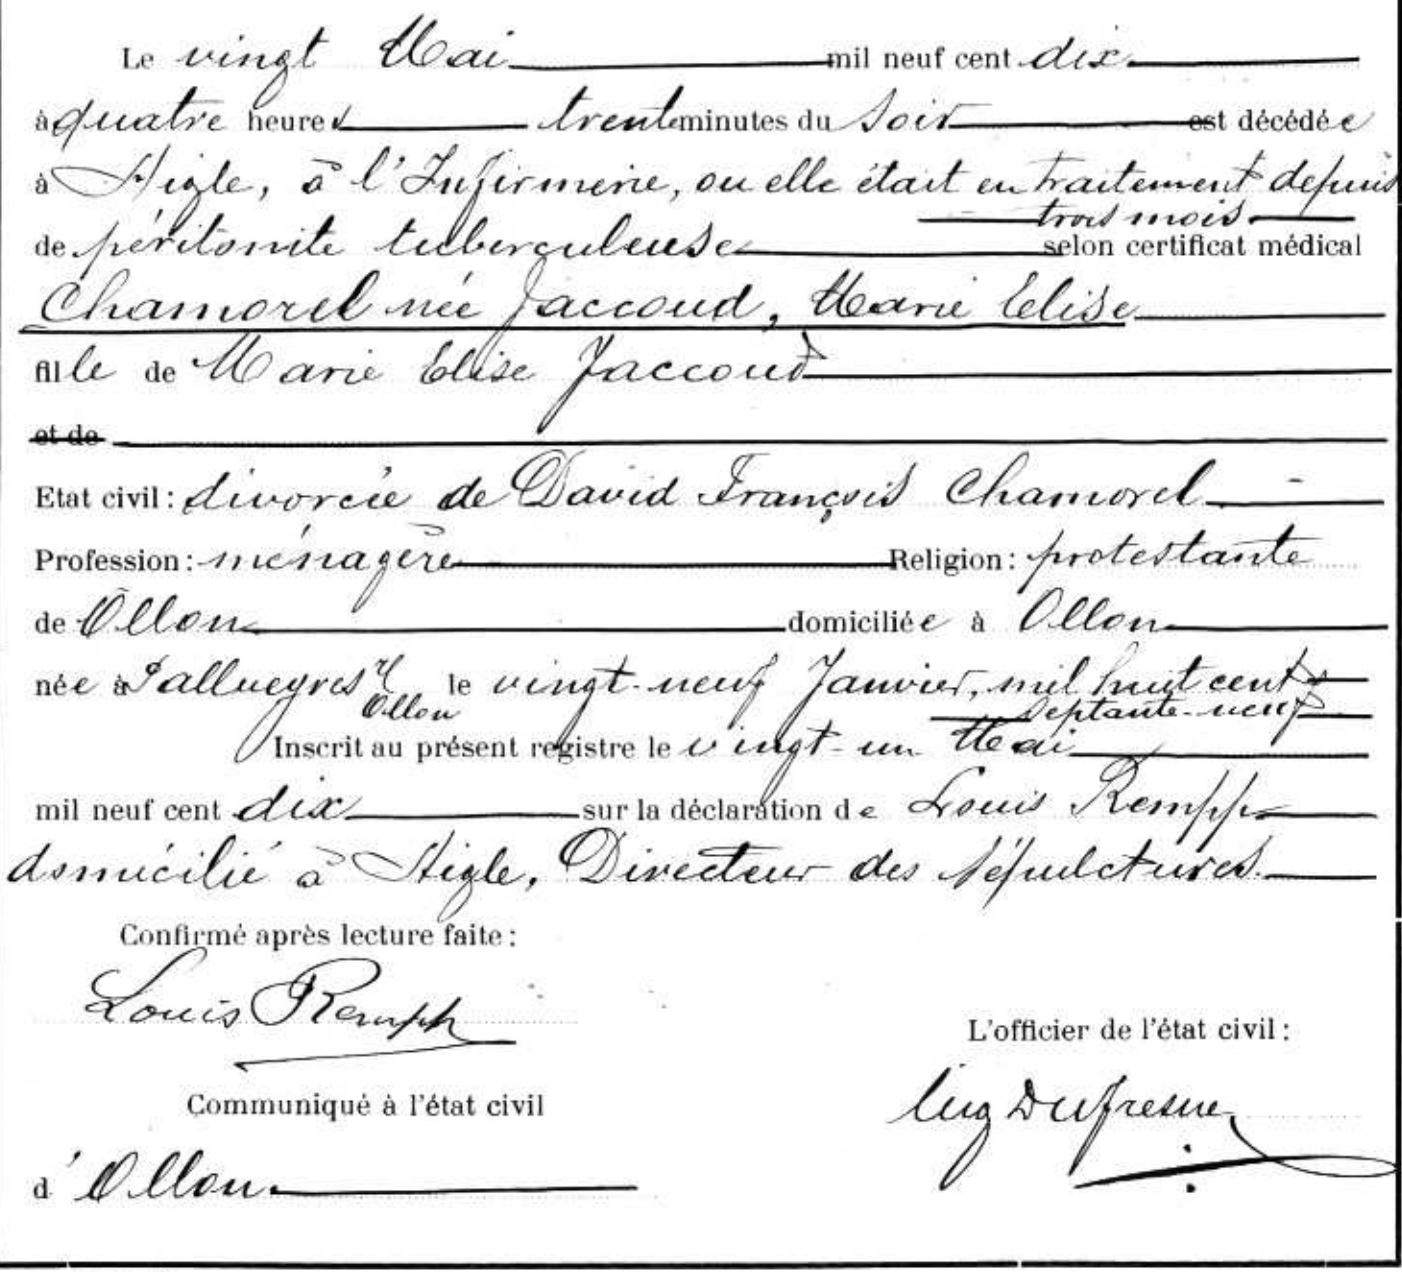 Le vingt Mai mil neuf cent dix
à quatre heures trente minutes du soir est décédée
à Aigle, à l'Infirmerie, ou elle était en traitement depuis
trois mois
de péritonite tuberculeuse selon certificat médical
Chamorel née Jaccoud, Marie Elise
fille de Marie Elise Jaccoud
et de
Etat civil: divorcée de David François Chamorel
Profession: ménagère Religion: protestante
de Ollon domiciliée à Ollon
née à Pallueyres s/ le vingt-neuf Janvier, mil huit cent
Ollon septante-neuf
Inscrit au présent registre le vingt-un Mai
mil neuf cent dix sur la déclaration de Louis Rempp
domicilié à Aigle, Directeur des sépulctures.
Confirmé après lecture faite:
Louis Rempp
L'officier de l'état civil:
Communiqué à l'état civil
Eug Dufresne
d'Ollon.